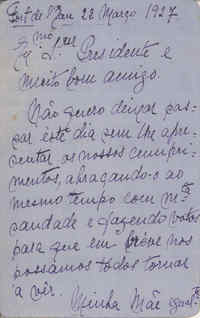 22 Março 1927
Presidente e
muito bom amigo.
Não quero deixar pas-
sar este dia sem lhe apre-
sentar os nossos cumpri-
mentos, abraçando-o ao
mesmo tempo com
saudade e fazendo votos
para que em breve nos
possâmos todos tornar
a vêr. Minha Mãe